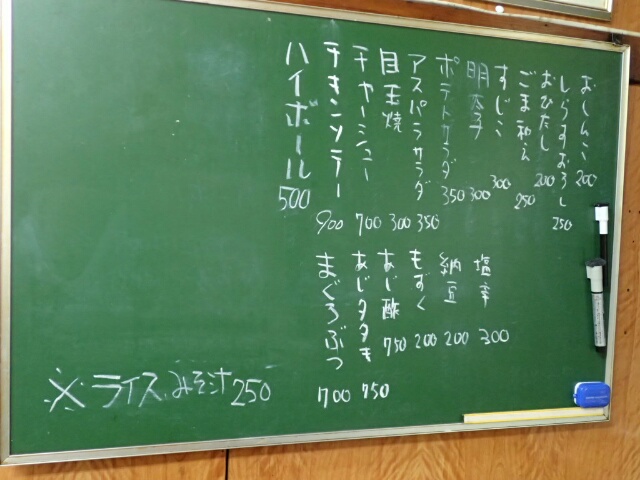 おしんこ 200
しらすおろし 250
おひたし 200
ごま和え 250
すじこ 300
明太子 300
ポテトサラダ 350
アスパラサラダ 350
目玉焼 300
チャーシュー 700
チキンソテー 900
ハイボール 500
塩辛 300
納豆 200
もずく 200
あじ酢 750
あじタタキ 750
まぐろぶつ 700
※ライス、みそ汁 250